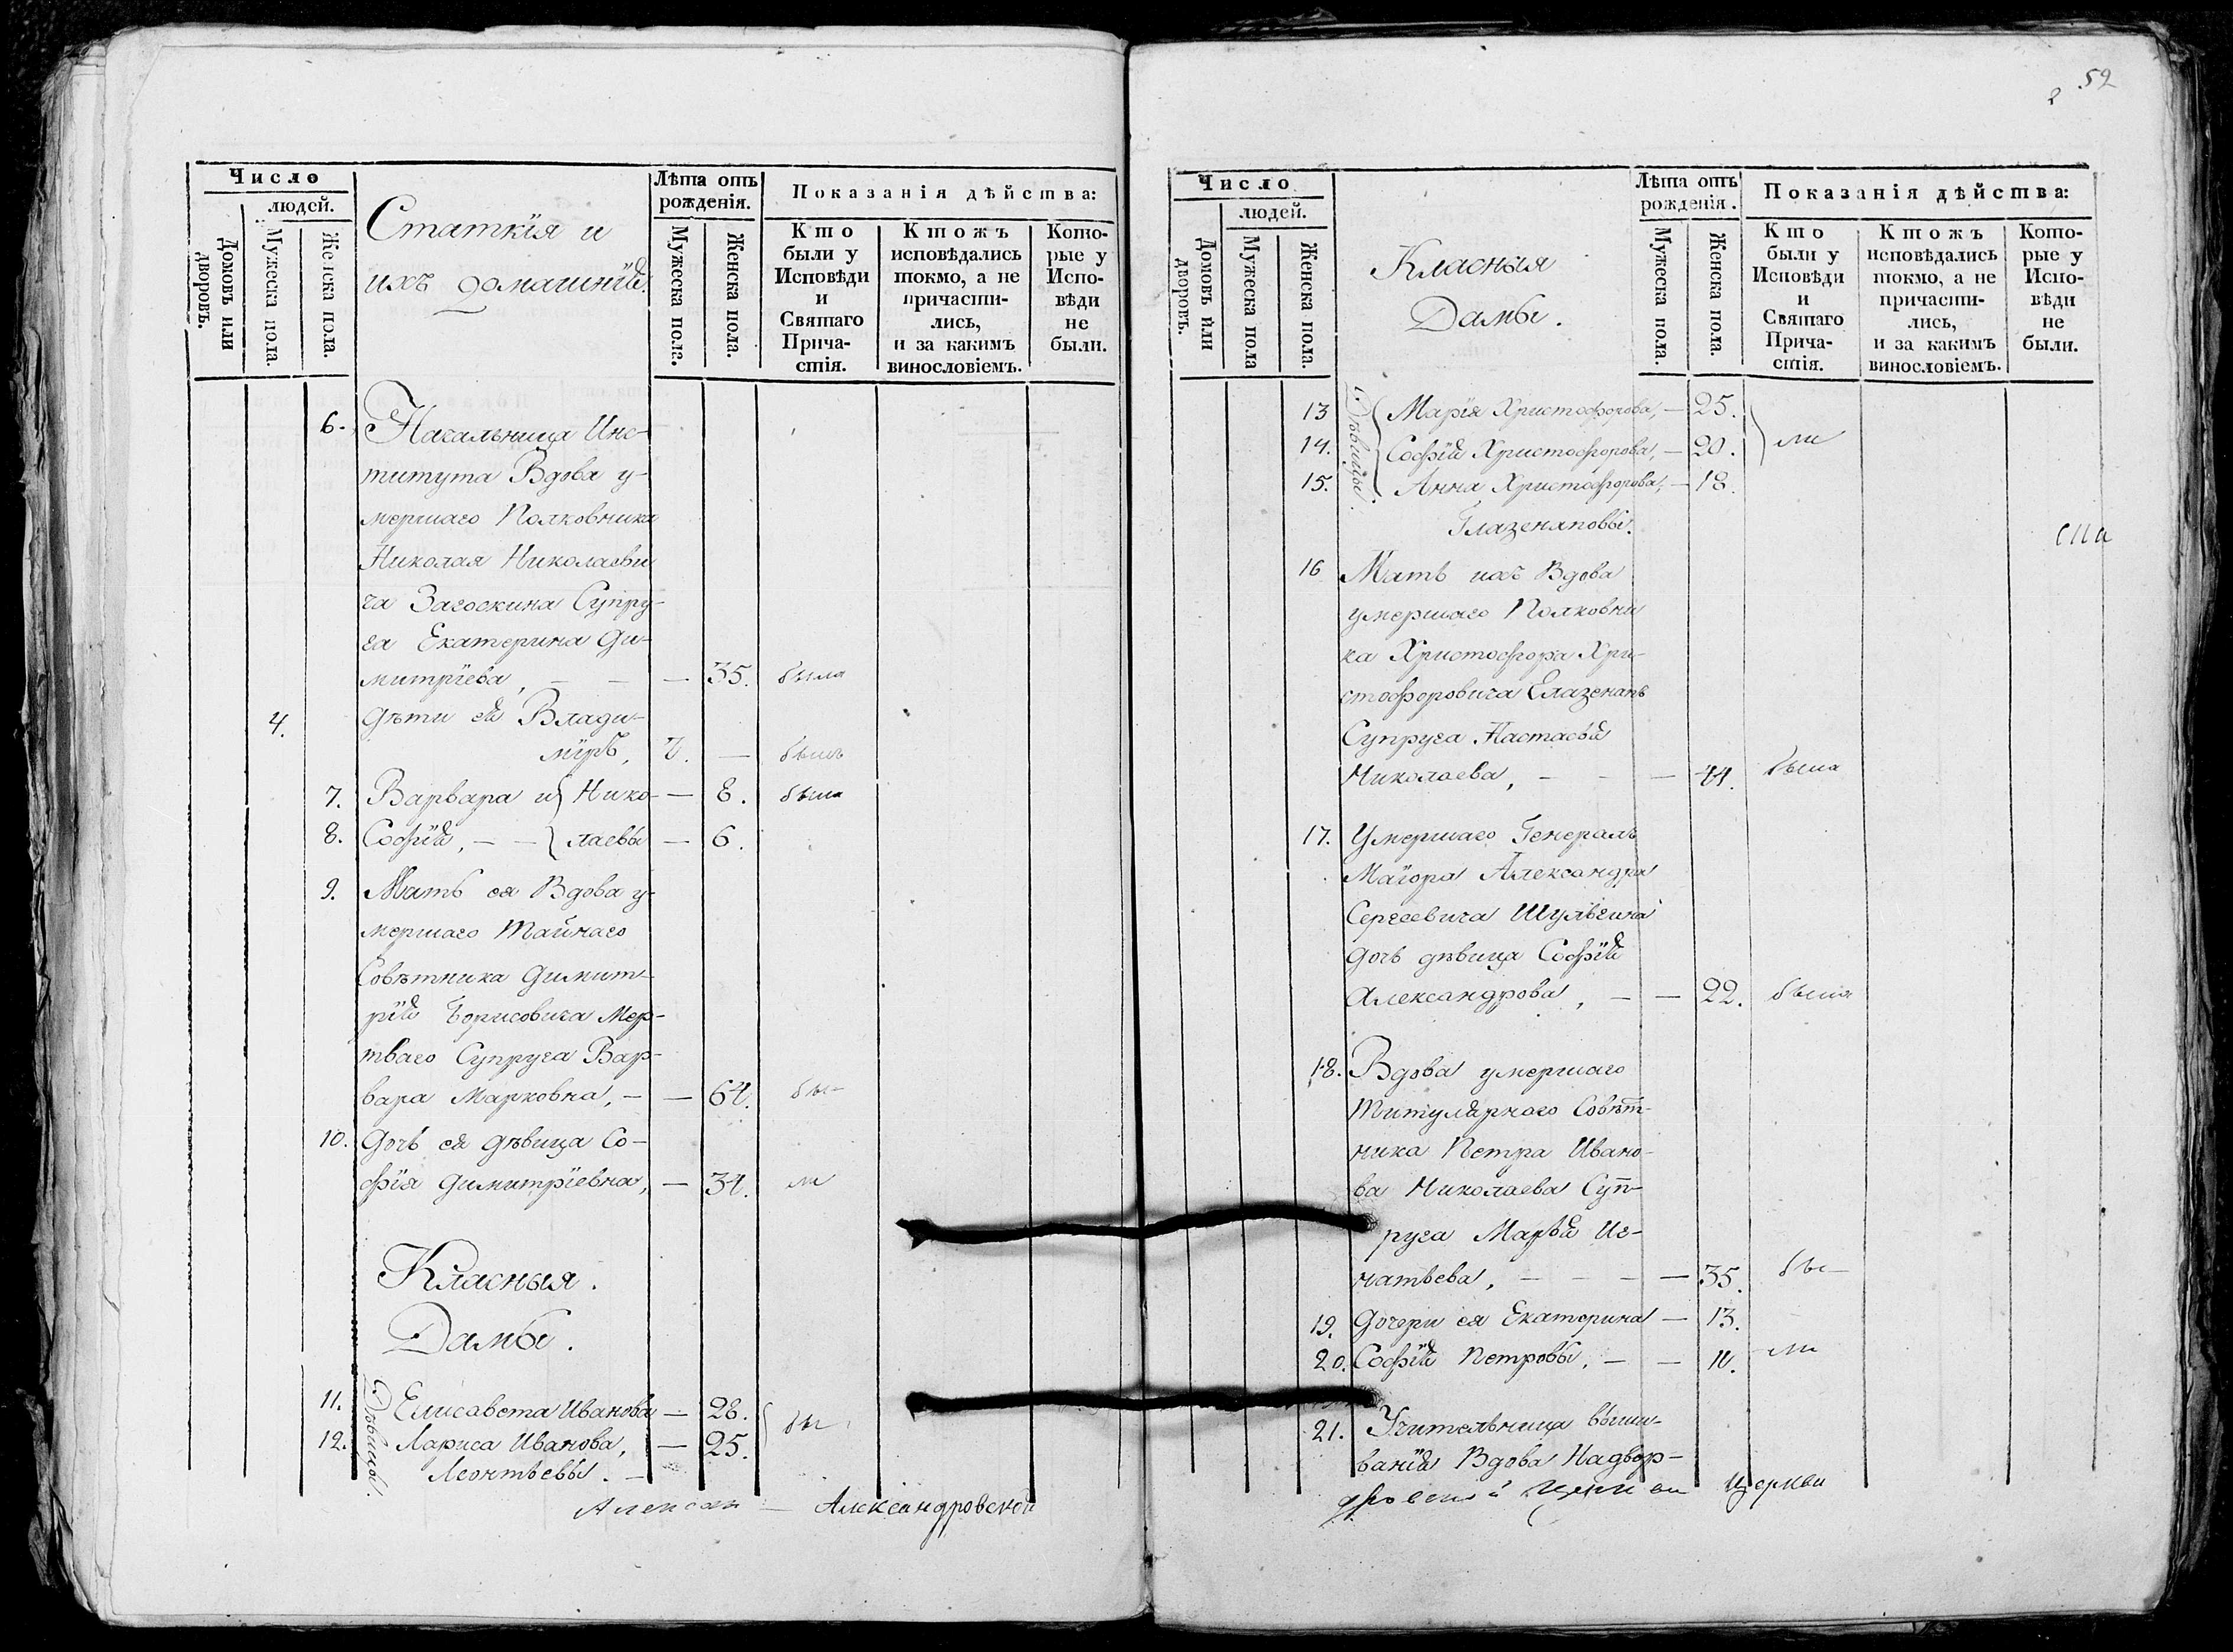 Число
людей.
Домовъ или дворовъ.
Мужеска пола.
Женска пола.
Статскія и
ихъ домашнія.
Лѣта отъ
рожденія.
Мужеска пола.
Женска пола.
Показанія дѣйства:
Кто
были у
Исповѣди
и
Святаго
Прича-
стія.
Ктожъ
исповѣдались
токмо, а не
причасти-
лись,
и за какимъ
винословіемъ.
Кото-
рые у
Испо-
вѣди
не
были.
6. Начальница Инс-
титута Вдова у-
мершаго Полковника
Николая Николаеви
ча Загоскина Супру-
га Екатерина Ди-
митріева, — — — 35. была
4. Дѣти ея Влади-
міръ, 7. — былъ
7. Варвара и } Нико- — 8. была
8. Софія, — — } лаевы — 6.
9. Мать ея Вдова у-
мершаго Тайнаго
Совѣтника Димит-
рія Борисовича Мер-
тваго Супруга Вар-
вара Марковна, — — 64. бы-
10. Дочь ея дѣвица Со-
фія Димитріевна, — 34. ла
Класныя.
Дамы.
Дѣвицы.
11. Елисавета Иванова — 28. } бы
12. Лариса Иванова, — 25.
Леонтьевы. —
Алексан — Александровской
2 52
Число
людей.
Домовъ или дворовъ.
Мужеска пола
Женска пола.
Класныя
Дамы.
Лѣта отъ
рожденія.
Мужеска пола.
Женска пола.
Показанія дѣйства:
Кто
были у
Исповѣди
и
Святаго
Прича-
стія.
Ктожъ
исповѣдались
токмо, а не
причасти-
лись,
и за какимъ
винословіемъ.
Кото-
рые у
Испо-
вѣди
не
были.
Дѣвицы.
13 Марія Христофорова, — 25.
14. Софія Христофорова, — 20. } ли
15. Анна Христофорова, — 18.
Глазенаповы.
16 Мать ихъ Вдова
умершаго Полковни
ка Христофора Хри-
стофоровича Глазенапъ
Супруга Настасья
Николаева, — — — 44. была
17. Умершаго Генералъ
Маіора Александра
Сергеевича Шульгина
дочь дѣвица Софія
Александрова, — — 22. была
18. Вдова умершаго
Титулярнаго Совѣт-
ника Петра Ивано-
ва Николаева Суп-
руга Марья Иг-
натьева, — — — — 35. бы-
19. Дочери ея Екатерина — 13.
20. Софія Петровы, — — 11. ли
21. Учительница выши-
ванія Вдова Надвор-
Церкви